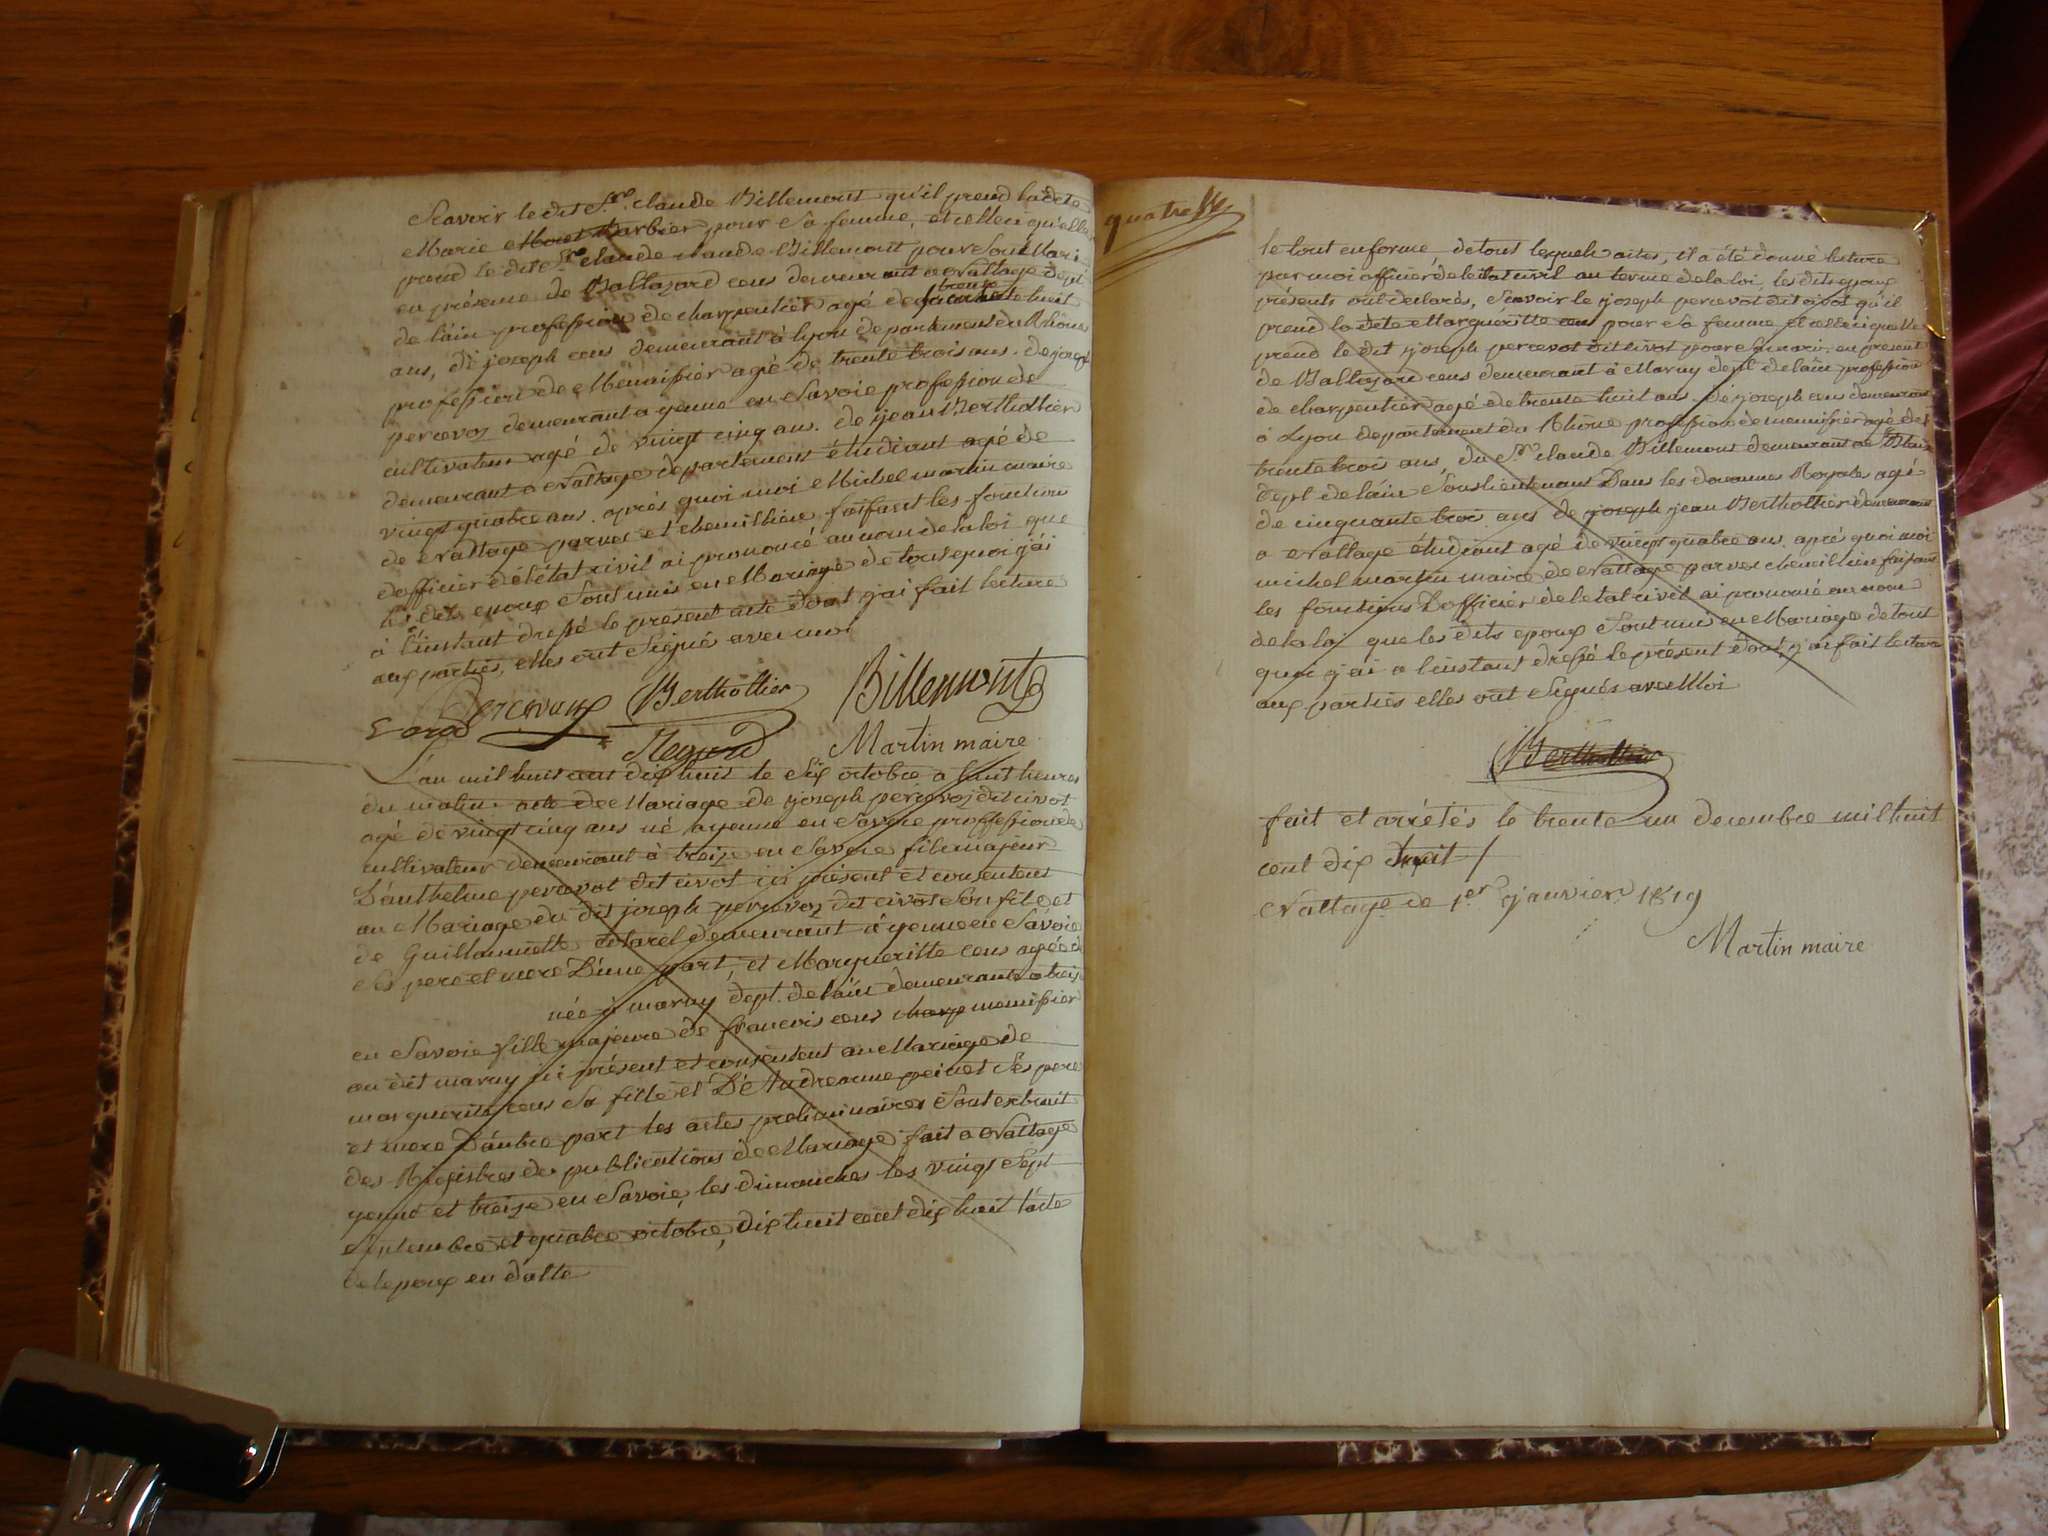 Scavoir le dit Sr. claude Billemont qu'il prend la dete
Marie Moret Barbier pour Sa femme, et celleci qu'elle
prend le dit Sr. claude claude Billemont pour Son Mari
en présence de Baltazard cons demeurant a Nattage dept
trente
de l'ain profession de charpentier agé de huit
ans, de joseph cons demeurant à lyon departement du Rhône
profession de Menuisier agé de trente trois ans. de joseph
percevoz demeurant a yenne en Savoie profession de
cultivateur agé de vingt cinq ans. de jean Berthollier
demeurant a Nattage departement étudiant agé de
vingt quatre ans. après quoi moi Michel martin maire
de Nattage parves et chemillieu faisant les fonction
d'officier de l'état civil ai prononcé au nom de la loi que
les dets epoux Sont unis en Mariage de tout quoi j'ai
à l'instant dressé le présent acte dont j'ai fait lecture
aux parties, elles ont Signés avec moi
Percevoz Berthollier Billemont
Martin maire
L'an mil huit cent dix huit le Six octobre a huit heures
du matin acte de Mariage de joseph percevoz dit civot
agé de vingt cinq ans né a yenne en Savoie profession de
cultivateur demeurant à treize en Savoie fils majeur
D'anthelme percevot dit civot ici présent et consentent
au Mariage du dit joseph percevoz dit civot Son fils et
de Guillaumette demeurant à yenne en Savoie
Ses pere et mere D'une part, et Margueritte cons agée de
née à marny dept. de l'ain demeurante a treize
en Savoie fille majeure de francois cons menuisier
au dit marny ici présent et consentent au Mariage de
marguerite cons Sa fille et D'Andreanne peinet Ses pere
et mere D'autre part les actes preliminaires Sont extrait
des Régistres de publications de Mariage fait a Nattage
yenne et treize en Savoie, les dimanches les vingt Sept
Septembre et quatre octobre, dix huit cent dix huit l'acte
de l'epoux en datte
quatre
le tout en forme, de tout lesquels actes, il a été donné lecture
par moi officier de l'etat civil au terme de la loi, les dits epoux
présents ont declarés, Scavoir le joseph percevot dit civot qu'il
prend la dete Margueritte cons pour Sa femme et celleci quelle
prend le dit joseph percevot dit civot pour Son mari, en présent
de Baltazard cons demeurant à Marny dept. de l'ain profession
de charpentier agé de trente huit ans. de joseph cons demeurant
à Lyon departement du Rhône profession de menuisier agé de
trente trois ans, du Sr claude Billemont demeurant au
dept. de l'ain Souslieutenant Dans les douannes Royales agé
de cinquante trois ans de joseph jean Berthollier demeurant
a Nattage étudiant agé de vingt quatre ans. aprés quoi moi
michel martin maire de Nattage parves chemillieu faisant
les fonctions D'officier de l'etat civil ai prononcé au nom
de la loi que les dits epoux Sont unis en Mariage de tout
quoi j'ai a l'instant dressé le présent dont j'ai fait lecture
aux parties elles ont Signés avec Moi
Berthollier
fait et arrétés le trente un decembre mil huit
cent dix huit
Nattage le 1er janvier 1819
Martin maire